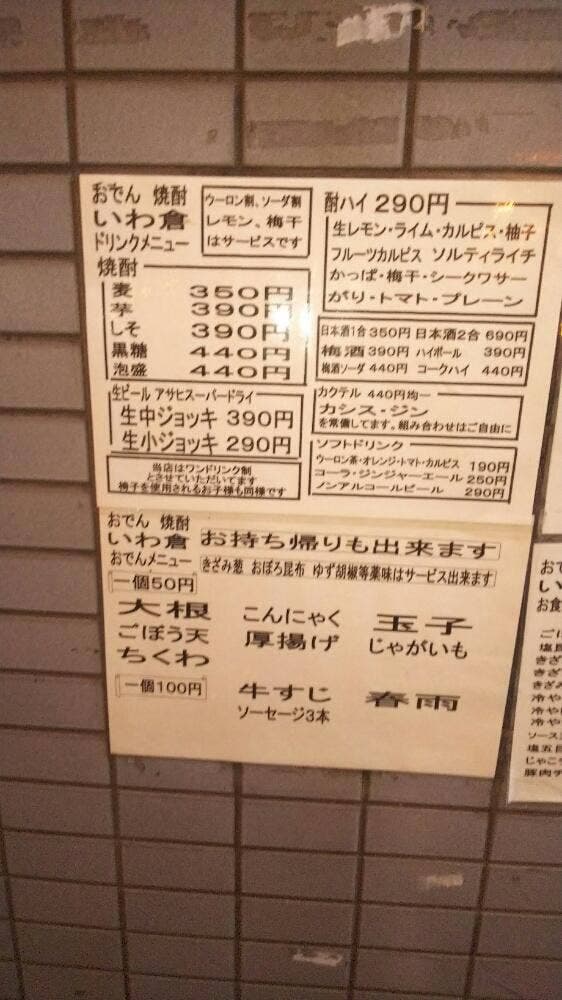 おでん 焼酎
いわ倉
ドリンクメニュー
ウーロン割、ソーダ割
レモン、梅干
はサービスです
焼酎
麦 350円
芋 390円
しそ 390円
黒糖 440円
泡盛 440円
生ビール アサヒスーパードライ
生中ジョッキ 390円
生小ジョッキ 290円
当店はワンドリンク制
とさせていただいてます
椅子を使用されるお子様も同様です
酎ハイ 290円
生レモン・ライム・カルピス・柚子
フルーツカルピス ソルティライチ
かっぱ・梅干・シークワサー
がり・トマト・プレーン
日本酒1合 350円 日本酒2合 690円
梅酒 390円 ハイボール 390円
梅酒ソーダ 440円 コークハイ 440円
カクテル 440円均一
カシス・ジン
を常備してます。組み合わせはご自由に
ソフトドリンク
ウーロン茶・オレンジ・トマト・カルピス 190円
コーラ・ジンジャーエール 250円
ノンアルコールビール 290円
おでん 焼酎
いわ倉 お持ち帰りも出来ます
おでんメニュー きざみ葱 おぼろ昆布 ゆず胡椒等薬味はサービス出来ます
一個50円
大根 こんにゃく 玉子
ごぼう天 厚揚げ じゃがいも
ちくわ
一個100円 牛すじ 春雨
ソーセージ3本